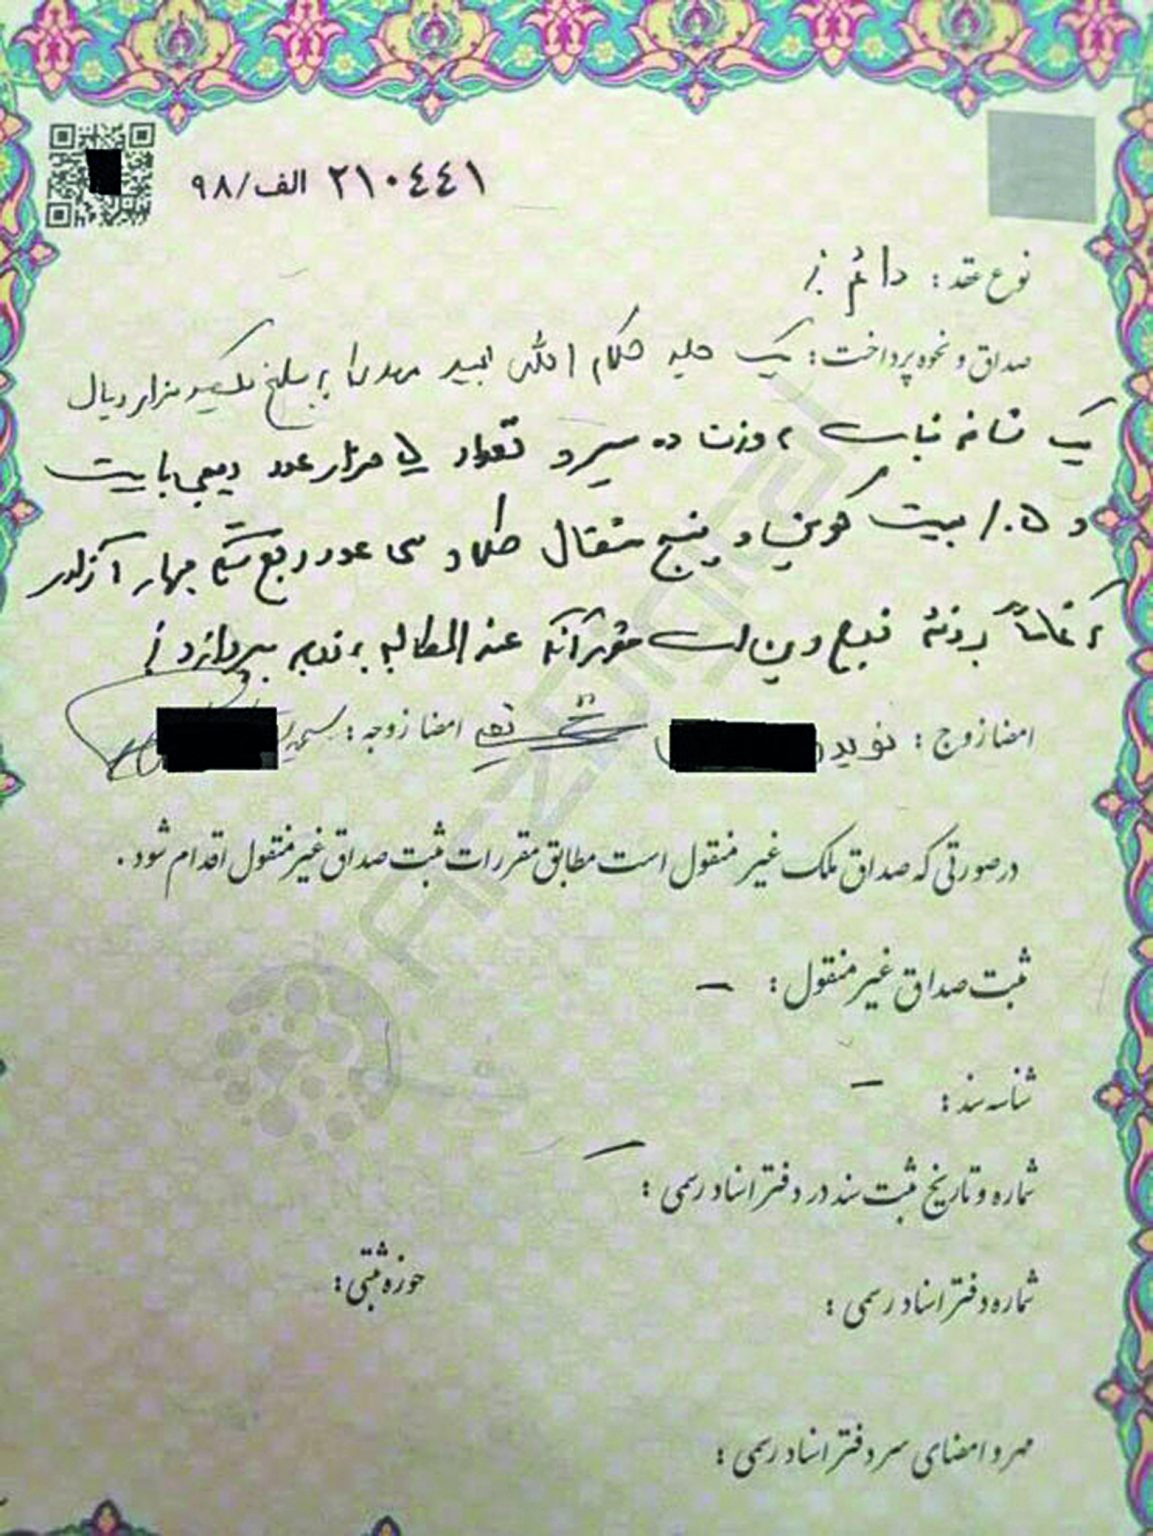 ۲۱۰٤٤۱ الف/۹۸
نوع عقد : دائم
صداق و نحوه پرداخت : یک جلد کلام الله مجید مهریه با مبلغ یکصد هزار ریال
یک شاخه نبات به وزن ده سیر و تعداد هزار عدد دیجی بایت
و ۰.۵ بیت کوین و پنج مثقال طلا و سی عدد ربع سکه بهار آزادی
که تماماً بر ذمه زوج دین است عندالمطالبه به زوجه بپردازد
امضا زوج : نوید امضا زوجه :
درصورتی که صداق ملک غیر منقول است مطابق مقررات ثبت صداق غیر منقول اقدام شود .
ثبت صداق غیر منقول : –
شناسه سند : –
شماره و تاریخ ثبت سند در دفتر اسناد رسمی : –
شماره دفتر اسناد رسمی : حوزه ثبتی :
مهر و امضای سردفتر اسناد رسمی :
ARZDIGITAL